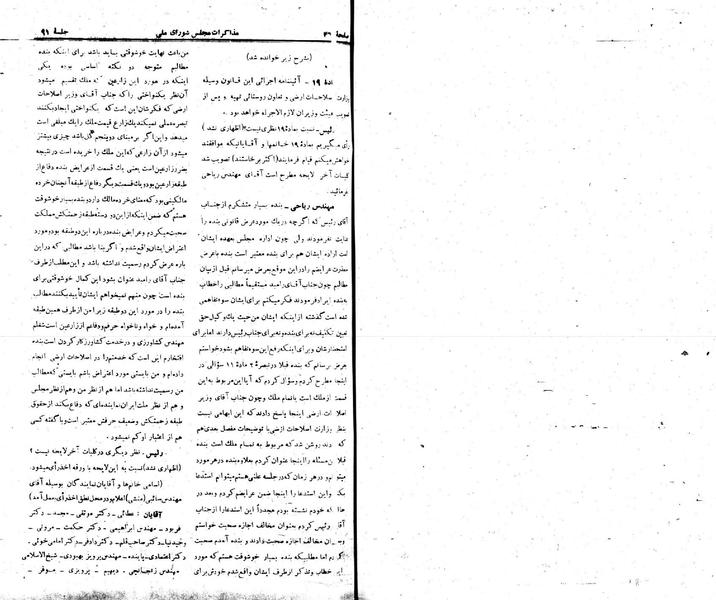 صفحهٔ ۳۰ مذاکرات مجلس شورای ملی جلسهٔ ۹۱
(بشرح زیر خوانده شد)
مادهٔ ۱۹ - آئیننامه اجرائی این قانون وسیله
وزارت اصلاحات ارضی و تعاون روستائی تهیه و پس از
تصویب هیئت وزیران لازم الاجراء خواهد بود.
رئیس - نسبت بمادهٔ ۱۹ نظری نیست؟ (اظهاری نشد)
رأی میگیریم بمادهٔ ۱۹ خانمها و آقایانیکه موافقند
خواهش میکنم قیام فرمایند (اکثر برخاستند) تصویب شد
کلیات آخر لایحه مطرح است آقای مهندس ریاحی
بفرمائید.
مهندس ریاحی - بنده بسیار متشکرم از جناب
آقای رئیس که اگر چه در یک مورد عرض قانونی بنده را
عنایت نفرمودند ولی چون اداره مجلس بعهده ایشان
است اراده ایشان هم برای بنده معتبر است بنده با عرض
معذرت عرایضم را در این موقع بعرض میرسانم قبل از بیان
مطالبم چون جناب آقای رامبد مستقیماً مطالبی را خطاب
به بنده ایراد فرمودند فکر میکنم برای ایشان سوء تفاهمی
شده است گذشته از اینکه ایشان من حیث یک وکیل حق
تعیین تکلیف نه برای بنده و نه برای جناب رئیس دارند اما برای
استحضار شان و برای اینکه رفع این سوء تفاهم بشود خواستم
عرض برسانم که بنده قبلا در تبصرهٔ ۲ مادهٔ ۱۱ سؤالی در
اینجا مطرح کردم و سؤال کردم که آیا این مربوط به این
قسمت از ملک است یا تمام ملک و چون جناب آقای وزیر
اصلاحات ارضی اینجا پاسخ دادند که این ابهامی نیست
بنظر وزارت اصلاحات ارضی با توضیحات مفصل بعدی هم
که دادند روشن شد که مربوط به تمام ملک است بنده
قبلا این مسئله را اینجا عنوان کردم بعلاوه بنده در هر مورد
میتوانم و در هر زمان که در جلسه علنی هستم میتوانم استدعا
بکنم و این استدعا را اینجا ضمن عرایضم کردم و بعد در
جائی که خودم نشسته بودم مجدداً این استدعا را از جناب
آقای رئیس کردم بعنوان مخالف اجازه صحبت خواستم
و بعنوان مخالف اجازه صحبت دادند و بنده آمدم صحبت
کردم اما مطالبیکه بنده بسیار خوشوقت هستم که مورد
این خطاب و تذکر از طرف ایشان واقع شدم خودش برای
من باعث نهایت خوشوقتی بباید باشد برای اینکه بنده
مطالبم متوجه دو نکته اساسی بوده یکی
اینکه در مورد این زارعین که ملک تقسیم میشود
آن نظر یکنواختی را که جناب آقای وزیر اصلاحات
ارضی که فکرشان این است که یکنواختی ایجاد بکنند
تبصره ملی نمیکند یک زارع قیمت ملک را یک مبلغی است
میدهد و این اگر بر مبنای دو پنجم کل باشد چیزی بیشتر
میشود از آن زارعی که این ملک را خریده است در نتیجه
بضرر زارعین است یعنی یک قسمت از عرایض بنده دفاع از
طبقه زارعین بود و یک قسمت دیگر دفاع از طبقه آنچنان خرده
مالکینی بود که معنای خرده مالک دارد و بنده بسیار خوشوقت
هستم که ضمن اینکه از این دو دسته طبقه زحمتکش مملکت
صحبت میکردم و عرایض بنده درباره این دو طبقه بود و مورد
اعتراض ایشان واقع شدم و اگر بنا باشد مطالبی که در این
باره عرض کردم رسمیت نداشته باشد و این مطلب از طرف
جناب آقای رامبد عنوان بشود این کمال خوشوقتی برای
بنده است چون منهم نمیخواهم ایشان تأیید بکنند مطالب
بنده را در مورد این دو طبقه زیرا من از طرف همین طبقه
آمده‌ام و خواه و ناخواه حرفم و دفاعم از زارعین است شغلم
مهندس کشاورزی و در خدمت کشاورز کار کردن است بنده
افتخارم این است که خدمتم را در اصلاحات ارضی انجام
داده‌ام و من بایستی مورد اعتراض باشم بایستی که مطالب
من رسمیت نداشته باشد اما هم از نظر من و هم از نظر مجلس
و هم از نظر ملت ایران نماینده‌ای که دفاع میکند از حقوق
طبقه زحمتکش وضعیف حرفش معتبر است و با گفته کسی
هم از اعتبار او کم نمیشود.
رئیس - نظر دیگری در کلیات آخر لایحه نیست؟
(اظهاری نشد) نسبت به این لایحه با ورقه اخذ رأی میشود.
اسامی خانم‌ها و آقایان نمایندگان بوسیله آقای
مهندس صائبی (منشی) اعلام و در محل نطق اخذ رأی بعمل آمد)
آقایان: عطائی - دکتر موثقی - مجد - دکتر
فربود - مهندس ابراهیمی - دکتر حکمت - مروتی -
وحیدنیا - دکتر صاحب‌قلم - دکتر دادفر - دکتر امامی خوئی -
دکتر اعتمادی - پاینده - مهندس پرویز بهبودی - شیخ‌الاسلامی
مهندس زنجانچی - دیهیم - پرویزی - موقر -